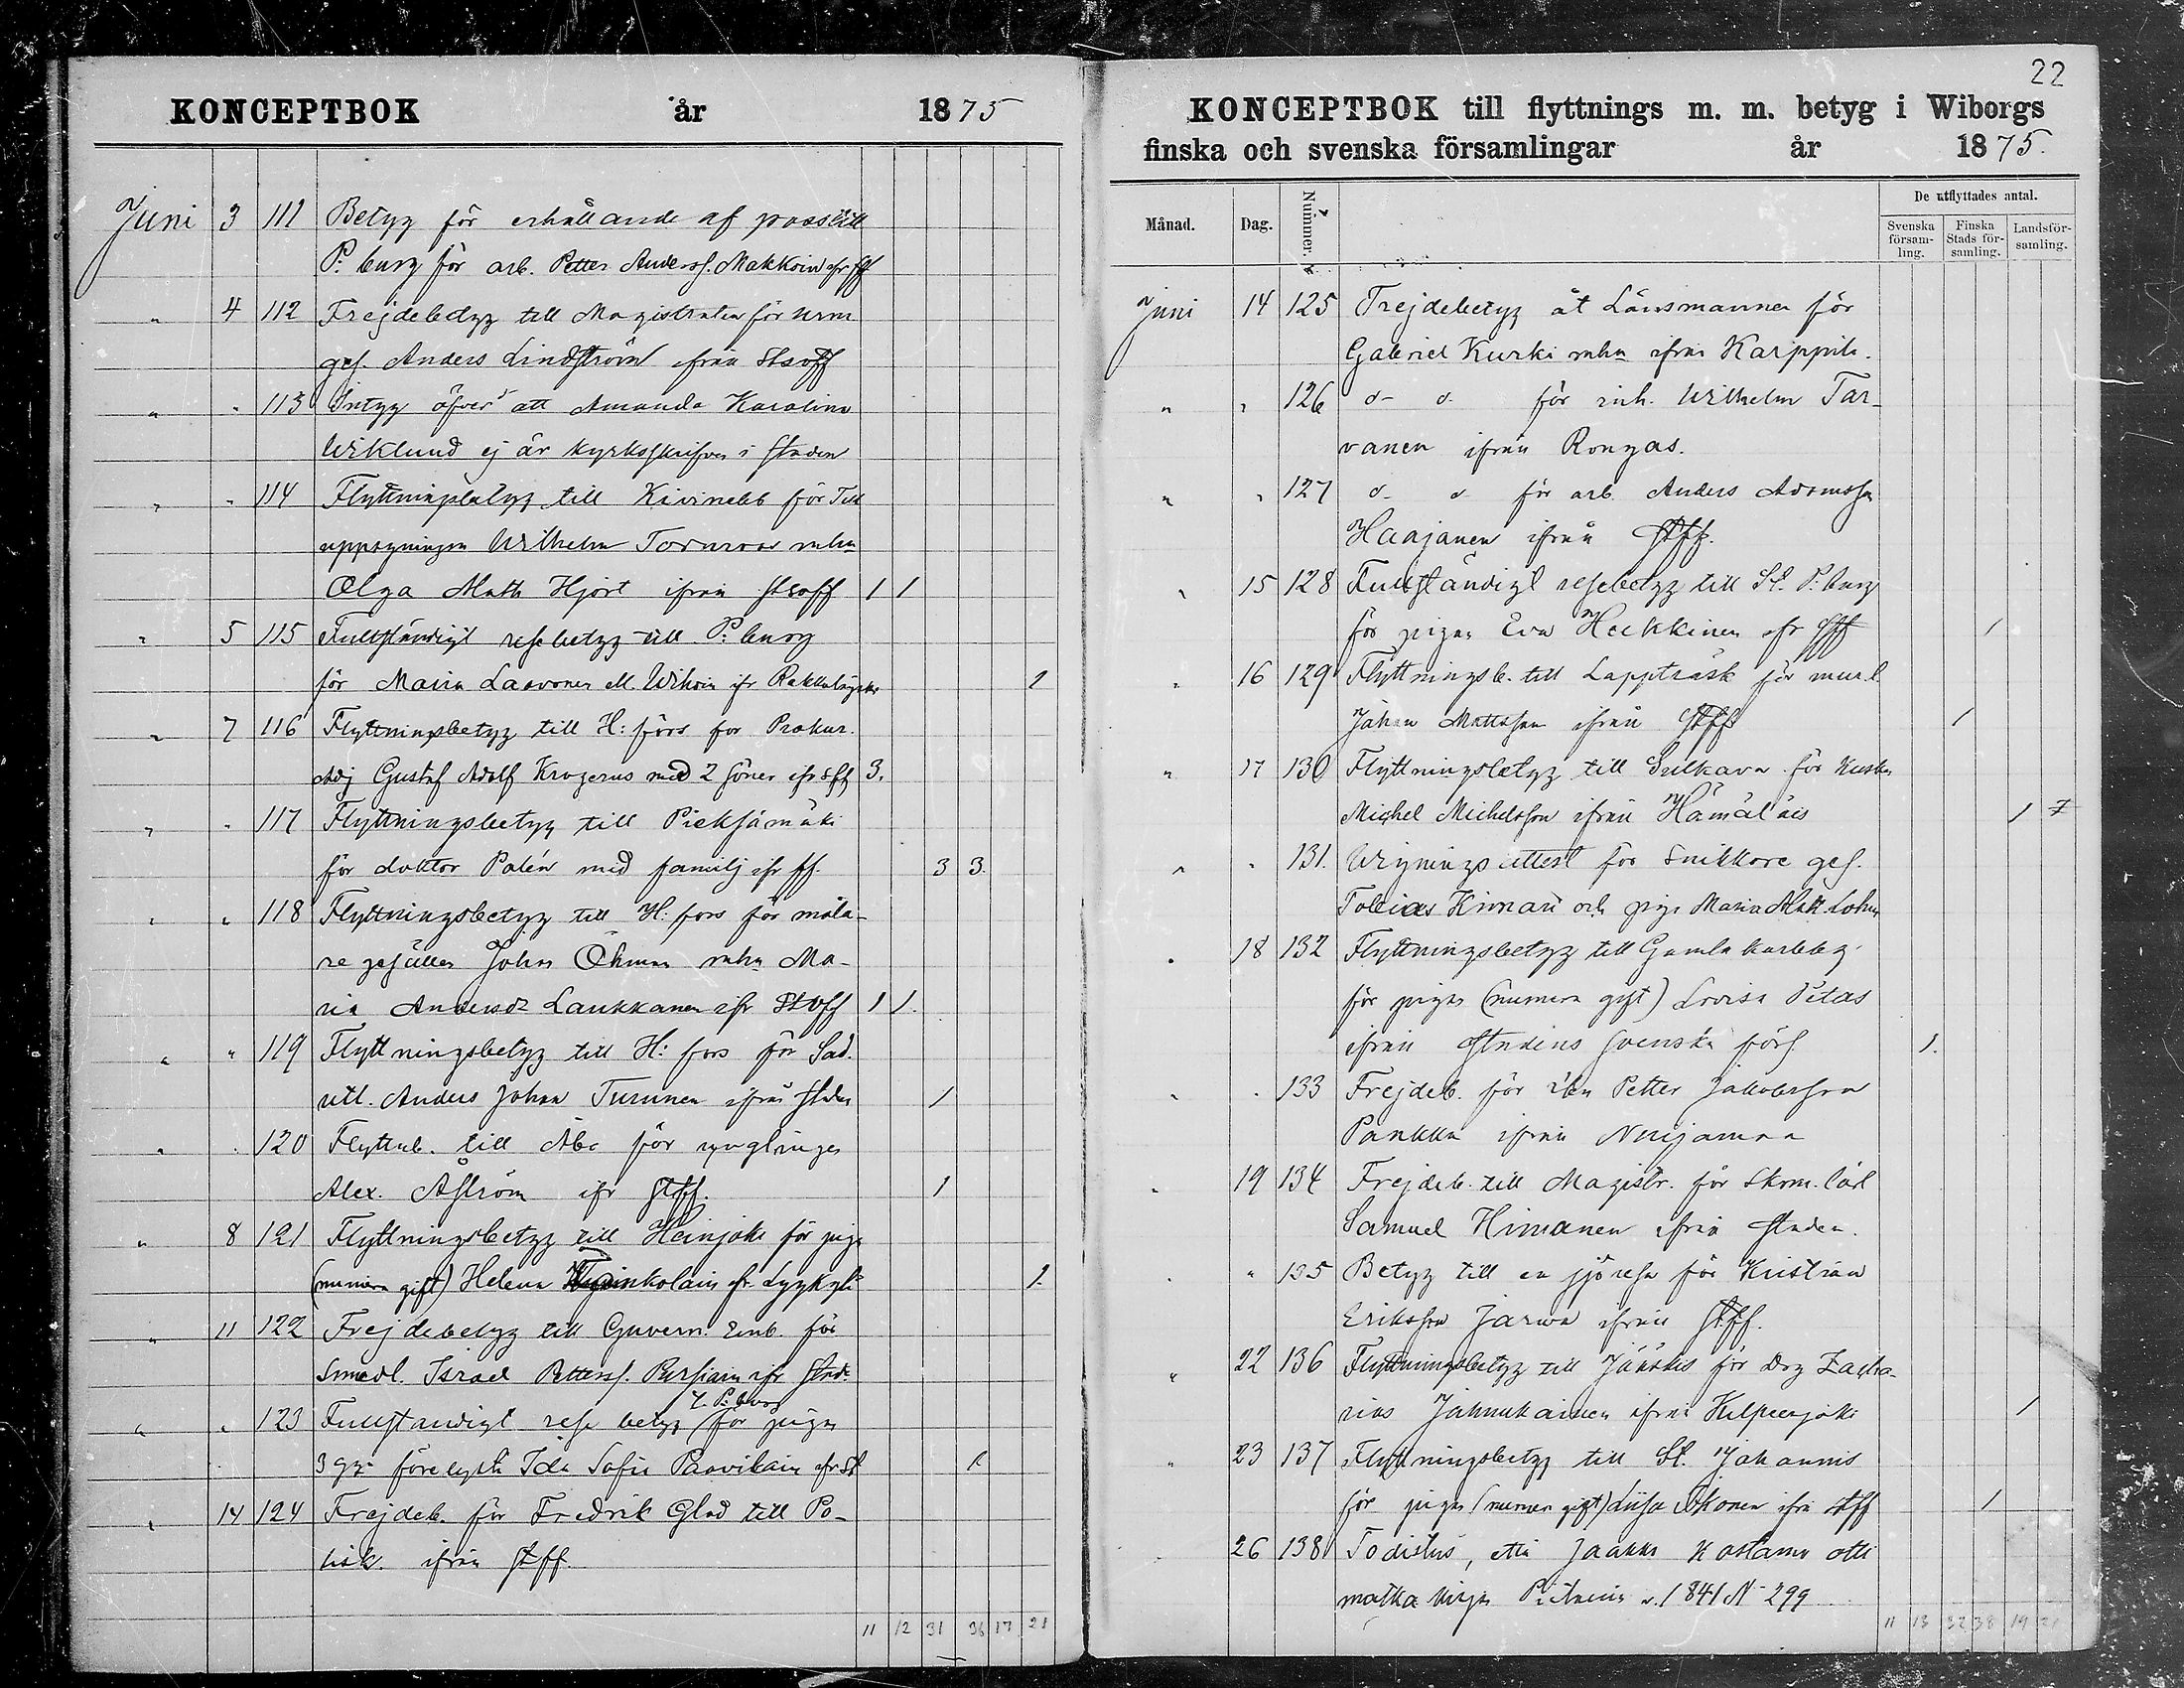 KONCEPTBOK år 1875
Juni 3 111 Betyg för erhållande af pass till
P:burg för arb. Petter Anderss. Makkoin ifr stff
" 4 112 Frejdebetyg till Magistraten för urm.
ges. Anders Lindström ifrån
" " 113 Intyg öfver att Amanda Karolina
Wiklund ej är kyrkoskrifven i staden
" " 114 Flyttningsbetyg till Kivinebb för
uppsyningsm Wilhelm Tornroos mhu
Olga Math Hjort ifrån 1 1
" 5 115 Fullständigt resebetyg till P:burg
för Maria Laavonen ifr 1
" 7 116 Flyttningsbetyg till H:fors för Prokur.
Adj Gustaf Adolf Krogerus med 2 söner ifr sff 3.
" " 117 Flyttningsbetyg till Pieksämäki
för doktor Palén med familj ifr ff. 3 3.
" " 118 Flyttningsbetyg till H:fors för måla-
re gesällen Johan Öhman mhu Ma-
ria Andersdr Laukkanen ifr 1 1.
" " 119 Flyttningsbetyg till H:fors för Sad.
utl. Anders Johan Turunen ifrån staden 1
" " 120 Flyttnb. till Åbo för ynglingen
Alex. Åström ifr stff. 1
" 8 121 Flyttningsbetyg till Heinjoki för pigan
(numera gift) Helena ifr. 1.
" 11 122 Frejdebetyg till Guvern. Emb. för
Smedl. Israel Petterss. ifr stad.
t. P:burg
" " 123 Fullständigt rese betyg för pigan
3 gr förelyst Ida Sofie Paavilain ifr st 1
" 14 124 Frejdeb. för Fredrik Glad till Po-
lisk. ifrån stff.
11 12 31 36 17 21
22
KONCEPTBOK till flyttnings m. m. betyg i Wiborgs
finska och svenska församlingar år 1875.
Månad. Dag. Nummer. De utflyttades antal.
Svenska försam-ling. Finska Stads för-samling. Landsför-samling.
Juni 14 125 Frejdebetyg åt Länsmannen för
Gabriel Kurki mhu ifrån Karppila.
" " 126 d- d- för inh. Wilhelm Tar-
vanen ifrån Rongas.
" " 127 d- d- för arb. Anders Adamsson
Haajanen ifrån stff.
" 15 128 Fullständigt resebetyg till St. P:burg
för pigan Eva Heikkinen ifr stff 1
" 16 129 Flyttningsb. till Lappträsk för murl.
Johan Mattsson ifrån stff 1
" 17 130 Flyttningsbetyg till Sulkava för kusken
Michel Michelsson ifrån Hämäläis 1
" " 131. Wigningsattest för Snikkare ges.
Tobias Himan och piga Maria
" 18 132 Flyttningsbetyg till Gamla karleby
för pigan (numera gift) Lovisa Petas
ifrån stadens svenska förs. 1.
" " 133 Frejdeb. för Petter Jakobsson
Pankka ifrån
" 19 134 Frejdeb. till Magistr. för Skom. lärl
Samuel Himanen ifrån staden.
" " 135 Betyg till en sjöresa för Kristian
Eriksson Jarwa ifrån stff.
" 22 136 Flyttningsbetyg till Jääskis för Drg Zacha-
rias Jahnukainen ifrån Kilpeenjoki 1
" 23 137 Flyttningsbetyg till St. Johannis
för pigan (numera gift) Liisa ifrån stff 1
26 138 Todistus, että Jaakko Kostamo otti
matka kirjan Pietariin v. 1841 N 299
11 13 32 38 19 21